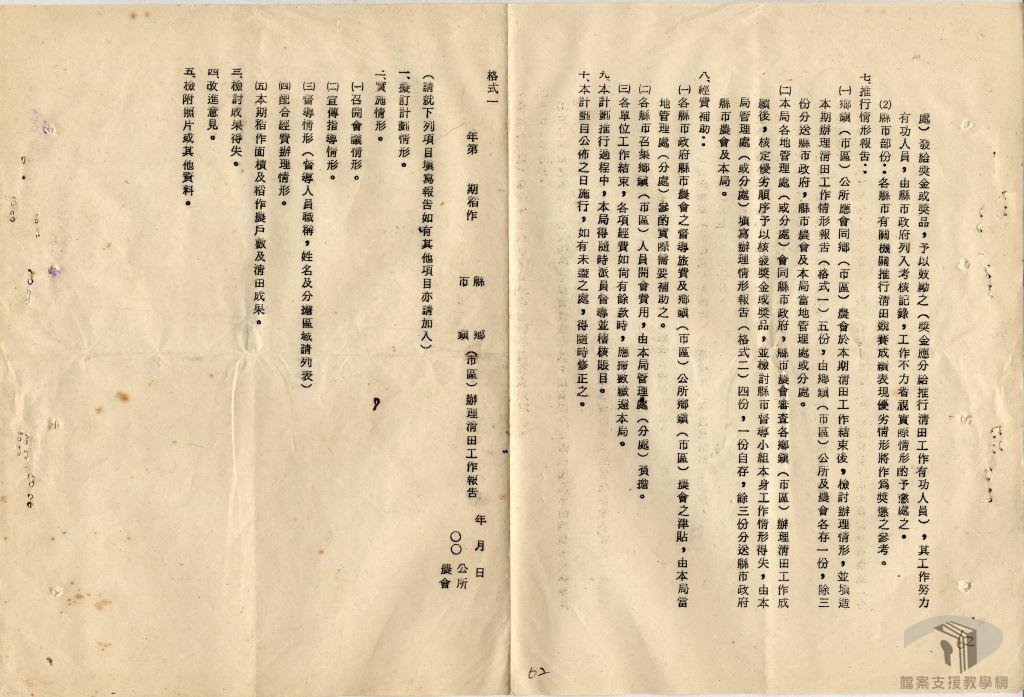 處)發給獎金或獎品,予以鼓勵之(獎金應分給推行清田工作有功人員),其工作努力
有功人員,由縣市政府列入考核記錄,工作不力者視實際情形酌予懲處之。
⑵縣市部份:各縣市有關機關推行清田競賽成績表現優劣情形將作爲獎懲之參考。
七、推行情形報告:
㈠鄉鎮(市區)公所應會同鄉(市區)農會於本期清田工作結束後,檢討辦理情形,並填造
本期辦理清田工作情形報告(格式一)五份,由鄉鎮(市區)公所及農會各存一份,除三
份分送縣市政府,縣市農會及本局當地管理處或分處。
㈡本局各地管理處(或分處)會同縣市政府,縣市農會審查各鄉鎮(市區)辦理清田工作成
績後,核定優劣順序予以核發獎金或獎品,並檢討縣市督導小組本身工作情形得失,由本
局管理處(或分處)填寫辦理情形報告(格式二)四份,一份自存,餘三份分送縣市政府
縣市農會及本局。
八、經費補助:
㈠各縣市政府縣市農會之督導旅費及鄉鎮(市區)公所鄉鎮(市區)農會之津貼,由本局當
地管理處(分處)參酌實際需要補助之。
㈡各縣市召集鄉鎮(市區)人員開會費用,由本局管理處(分處)負擔。
㈢各單位工作結束,各項經費如尚有餘款時,應掃數繳還本局。
九、本計劃推行過程中,本局得隨時派員督導並稽核賬目。
十、本計劃自公佈之日施行,如有未盡之處,得隨時修正之。
62
格式一
年第 期稻作 縣市 鄉鎮(市區)辦理清田工作報告 年 月 日
〇〇 公所
農會
(請就下列項目填寫報告如有其他項目亦請加入)
一、擬訂計劃情形。
二、實施情形。
㈠召開會議情形。
㈡宣傳指導情形。
㈢督導情形(督導人員職稱,姓名及分擔區域請列表)
㈣配合經費辦理情形。
㈤本期稻作面積及稻作農戶數及清田成果。
三、檢討成果得失。
四、改進意見。
五、檢附照片或其他資料。
62
檔案支援教學網